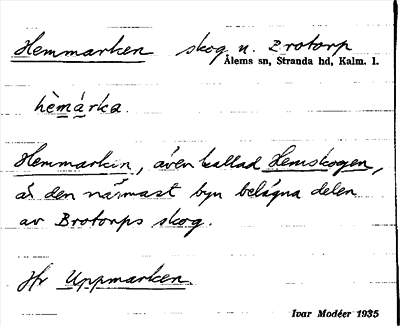 Hemmarken skog n. Brotorp
Ålems sn, Stranda hd, Kalm. l.
hèmárka.
Hemmarken, även kallad Hemskogen,
är den närmast byn belägna delen
av Brotorps skog.
Hr Uppmarken
Ivar Modéer 1935